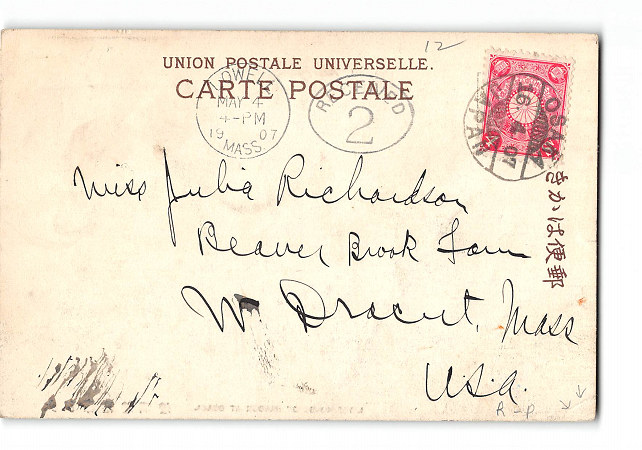 12
UNION POSTALE UNIVERSELLE.
CARTE POSTALE
LOWELL
MAY 4
4-PM
1907
MASS.
RECEIVED
2
OSAKA
16.4.07
JAPAN
きかは便郵
Miss Julia Richardson
Beaver Brook Farm
W Dracut, Mass
U.S.A.
R-P